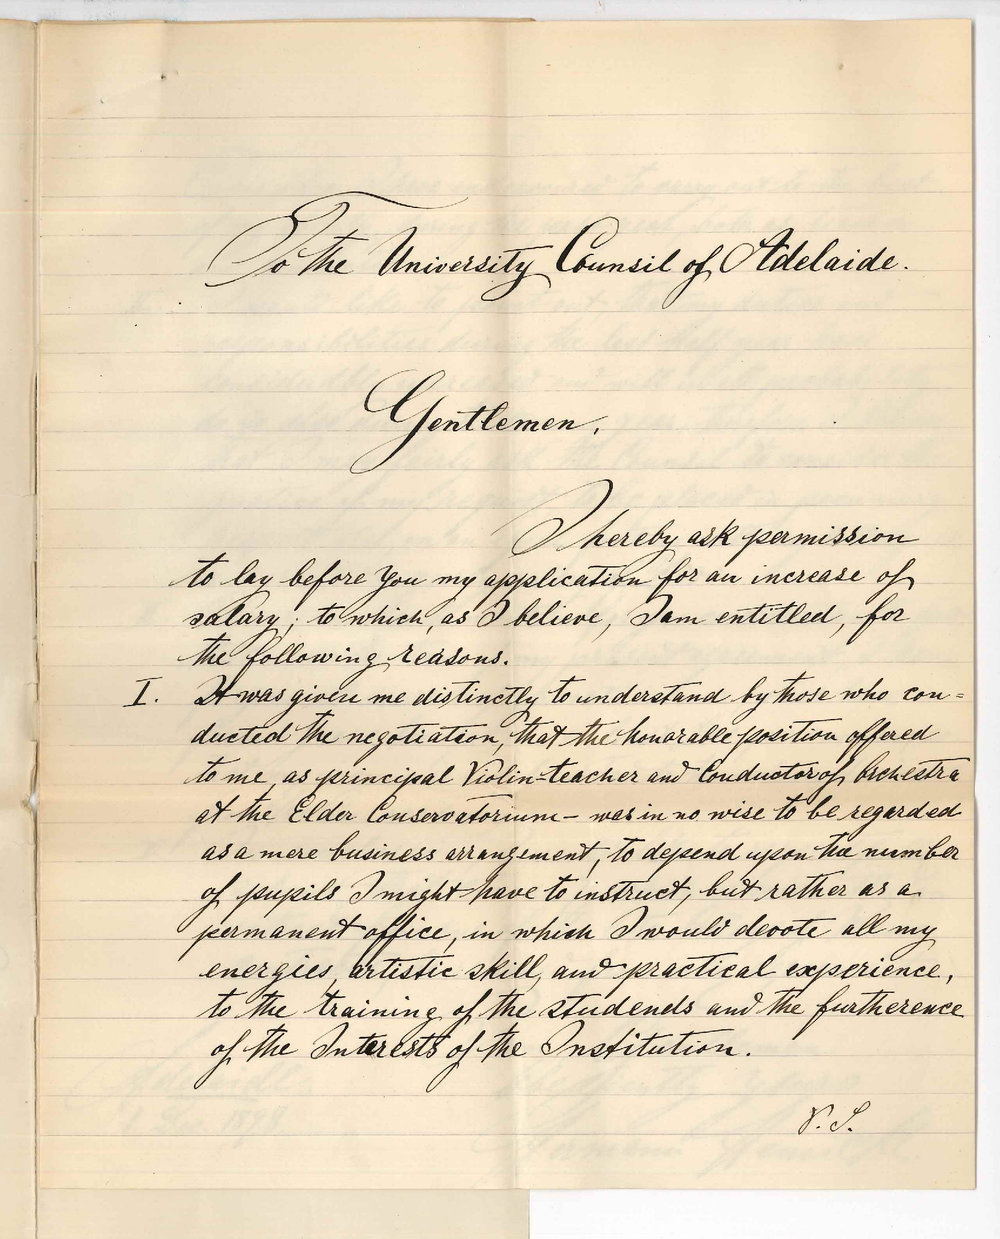 To the University Counsil of Adelaide.
Gentlemen.
I hereby ask permission
to lay before you my application for an increase of
salary; to which, as I believe, I am entitled, for
the following reasons.
I. It was given me distinctly to understand by those who con=
ducted the negotiation, that the honorable position offered
to me, as principal Violin=teacher and Conductor of Orchestra
at the Elder Conservatorium – was in no wise to be regarded
as a mere business arrangement, to depend upon the number
of pupils I might have to instruct, but rather as a
permanent office, in which I would devote all my
energies, artistic skill, and practical experience,
to the training of the studends and the furtherence
of the Interests of the Institution.